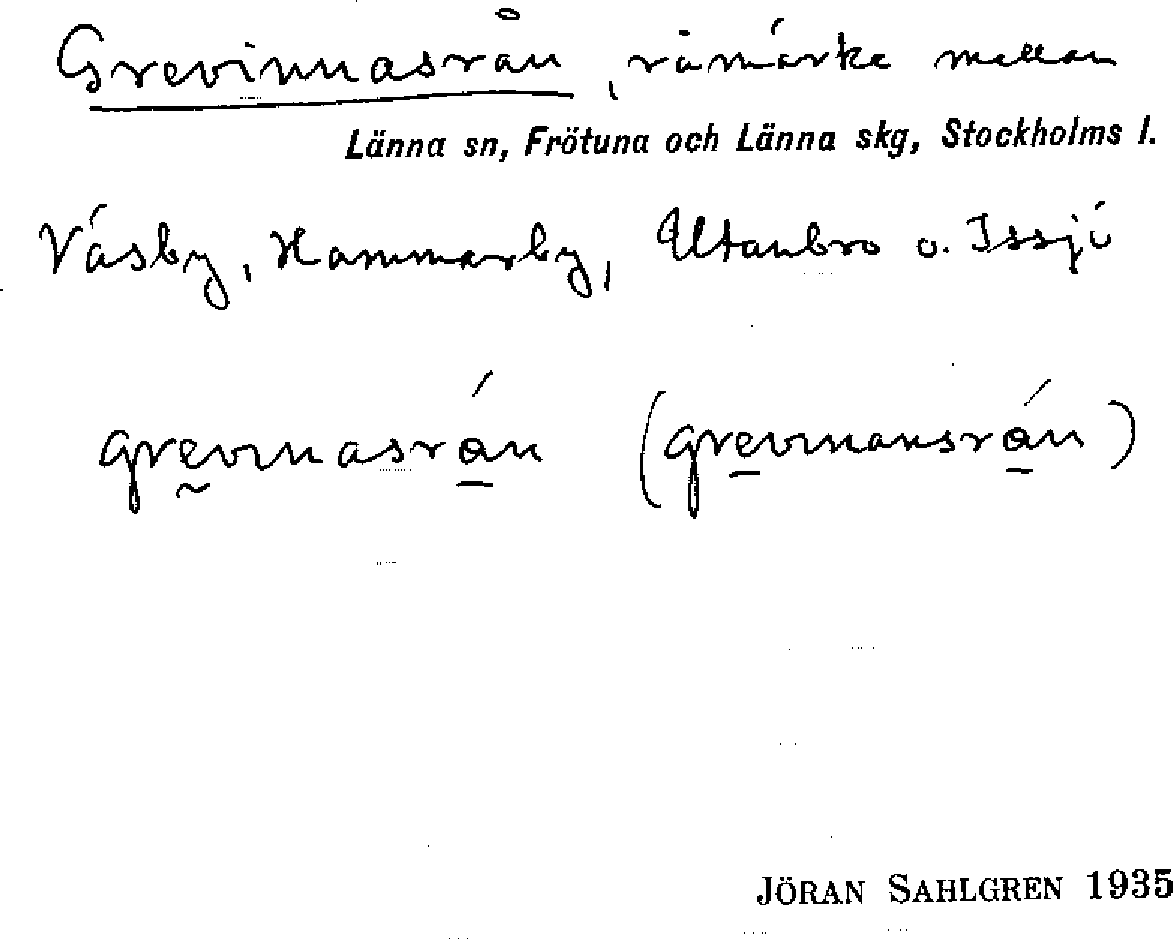 Grevinnasrån, råmärke mellan
Länna sn, Frötuna och Länna skg, Stockholms l.
Väsby, Hammarby, Utanbro o. Issjö
grevinasrån (grevinansrån)
JÖRAN SAHLGREN 1935